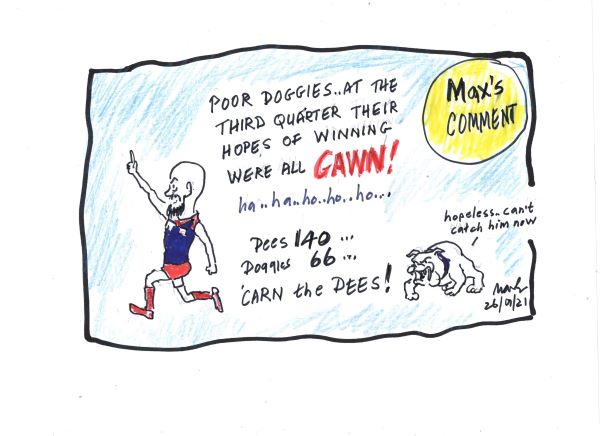 POOR DOGGIES..AT THE
THIRD QUARTER THEIR
HOPES OF WINNING
WERE ALL GAWN!
ha..ha..ho..ho..ho...
Dees 140 ...
Doggies 66 ...
'CARN the DEES!
Max's
COMMENT
hopeless..can't
catch him now
26/09/21